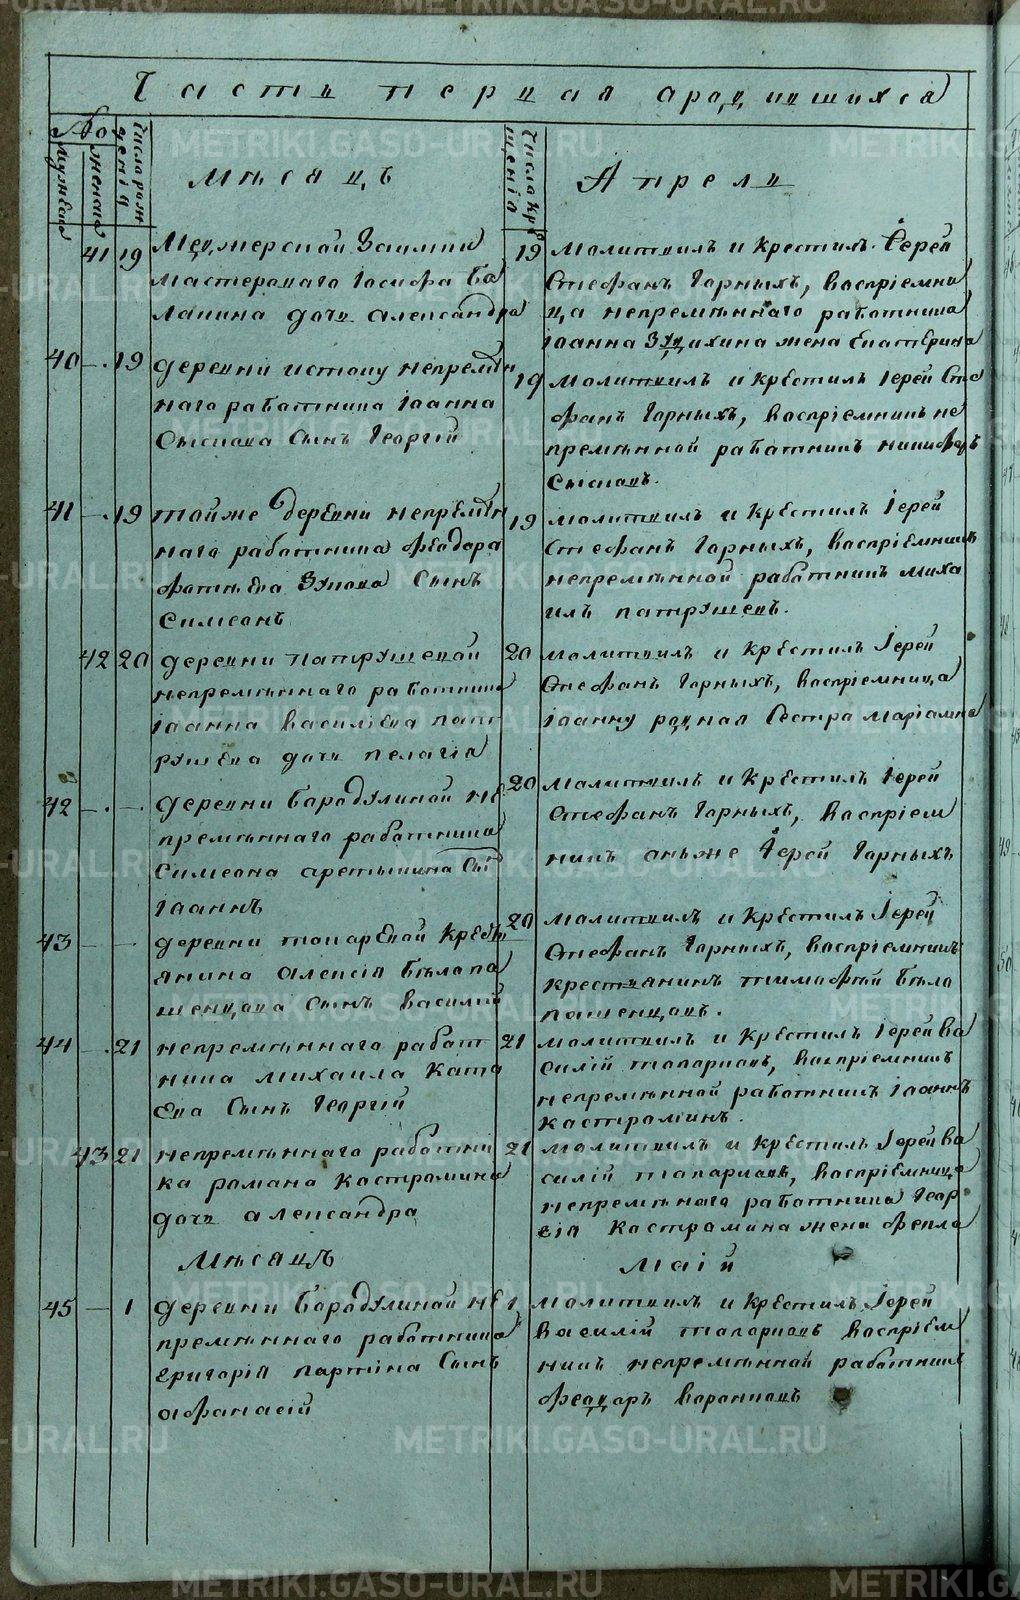 Часть первая ародившихся
№
мужеска
женска
Числа рож
дения
Месяцъ
Числа кре
щенія
Апрель
41 19
мастероваго Іосифа Ба
лакина дочь александра
19 молитвилъ и крестилъ Іерей
Стефанъ Горныхъ, воспріемни
ца непремѣннаго работника
іоанна Зуихина жена Екатерина
40 — . 19 деревни истоку непремѣн
наго работника іоанна
Сыскова Сынъ Георгій
19 молитвилъ и крестилъ Іерей Сте
фанъ Горныхъ, воспріемникъ не
премѣнной работникъ никифоръ
Сысковъ.
41 — . 19 тойже деревни непремѣн
наго работника феодора
фотѣева Зукова Сынъ
Симеонъ
19 молитвилъ и крестилъ Іерей
Стефанъ Горныхъ, воспріемникъ
непремѣнной работникъ миха
илъ патрушевъ.
42 20 деревни патрушевой
непремѣннаго работника
іоанна василіева пат
рушева дочь пелагія
20 молитвилъ и крестилъ Іерей
Стефанъ Горныхъ, воспріемница
іоанну родная Сестра маріамна
42 — . — деревни Бородулиной не
премѣннаго работника
Симеона аретькина Сы
іоаннъ
20 молитвилъ и крестилъ Іерей
Стефанъ Горныхъ, воспріем
никъ онъже Іерей Горныхъ
43 — . деревни токаревой Кресть
янина алексія Бѣлопа
шенцова Сынъ василій
20 молитвилъ и крестилъ Іерей
Стефанъ Горныхъ, воспріемникъ
крестьянинъ тимофей Бѣло
пашенцовъ.
44 — . 21 непремѣннаго работ
ника михаила Ката
ева Сынъ Георгій
21 молитвилъ и крестилъ Іерей ва
силій топорковъ, воспріемникъ
непремѣнной работникъ іоаннъ
костроминъ.
43 21 непремѣннаго работни
ка романа костромина
дочь александра
21 молитвилъ и крестилъ Іерей ва
силій топорковъ, воспріемница
непремѣннаго работника Геор
гія Костромина жена фекла
Месяцъ
маій
45 — 1 деревни Бородулиной не
премѣннаго работника
григорія паркина Сынъ
афанасій
1 молитвилъ и крестилъ Іерей
василій топорковъ воспріем
никъ непремѣнной работникъ
феодоръ воронковъ
METRIKI.GASO-URAL.RU